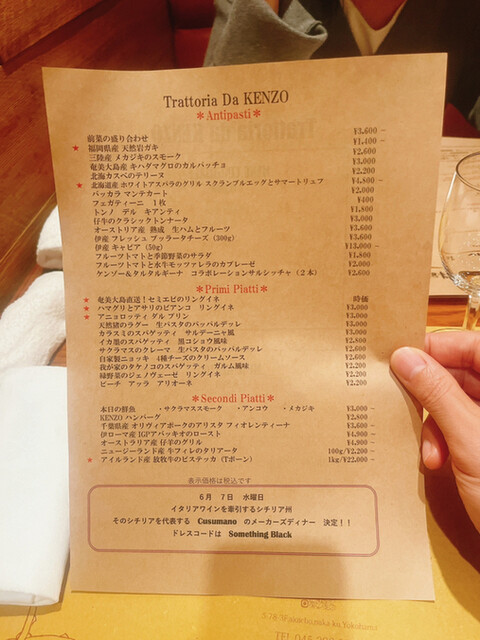 Trattoria Da KENZO
＊Antipasti＊
前菜の盛り合わせ ¥3,600 ~
★ 福岡県産 天然岩ガキ ¥1,400 ~
三陸産 メカジキのスモーク ¥2,600
奄美大島産 キハダマグロのカルパッチョ ¥3,000
北海カスベのテリーヌ ¥2,200
★ 北海道産 ホワイトアスパラのグリル スクランブルエッグとサマートリュフ ¥4,800 ~
バッカラ マンテカート ¥2,000
フェガティーニ 1枚 ¥400
トンノ デル キアンティ ¥1,800
仔牛のクラシックトンナータ ¥3,000
オーストリア産 熟成 生ハムとフルーツ ¥3,600
伊産 フレッシュ ブッラータチーズ (300g) ¥3,600
伊産 キャビア (50g) ¥13,000 ~
フルーツトマトと季節野菜のサラダ ¥1,800
フルーツトマトと水牛モッツァレラのカプレーゼ ¥2,000
ケンゾー＆タルタルギーナ コラボレーションサルシッチャ (2本) ¥2,600
＊Primi Piatti＊
★ 奄美大島直送！セミエビのリングイネ 時価
★ ハマグリとアサリのビアンコ リングイネ ¥3,000
★ アニョロッティ ダル プリン ¥3,000
天然猪のラグー 生パスタのパッパルデッレ ¥3,000
カラスミのスパゲッティ サルデーニャ風 ¥3,000
イカ墨のスパゲッティ 黒コショウ風味 ¥2,800
サクラマスのクレーマ 生パスタのパッパルデッレ ¥2,600
自家製ニョッキ 4種チーズのクリームソース ¥2,600
我が家のタケノコのスパゲッティ ガルム風味 ¥2,200
緑野菜のジェノヴェーゼ リングイネ ¥2,200
ピーチ アッラ アリオーネ ¥2,200
＊Secondi Piatti＊
本日の鮮魚 ・サクラマススモーク ・アンコウ ・メカジキ ¥3,000 ~
KENZO ハンバーグ ¥2,800
千葉県産 オリヴィアポークのアリスタ フィオレンティーナ ¥3,600
伊ローマ産 IGPアバッキオのロースト ¥4,900
オーストラリア産 仔羊のグリル ¥4,900
ニュージーランド産 牛フィレのタリアータ 100g/¥2,200 ~
★ アイルランド産 放牧牛のビステッカ (Tボーン) 1kg/¥22,000 ~
表示価格は税込です
6月 7日 水曜日
イタリアワインを牽引するシチリア州
そのシチリアを代表する Cusumano のメーカーズディナー 決定！！
ドレスコードは Something Black